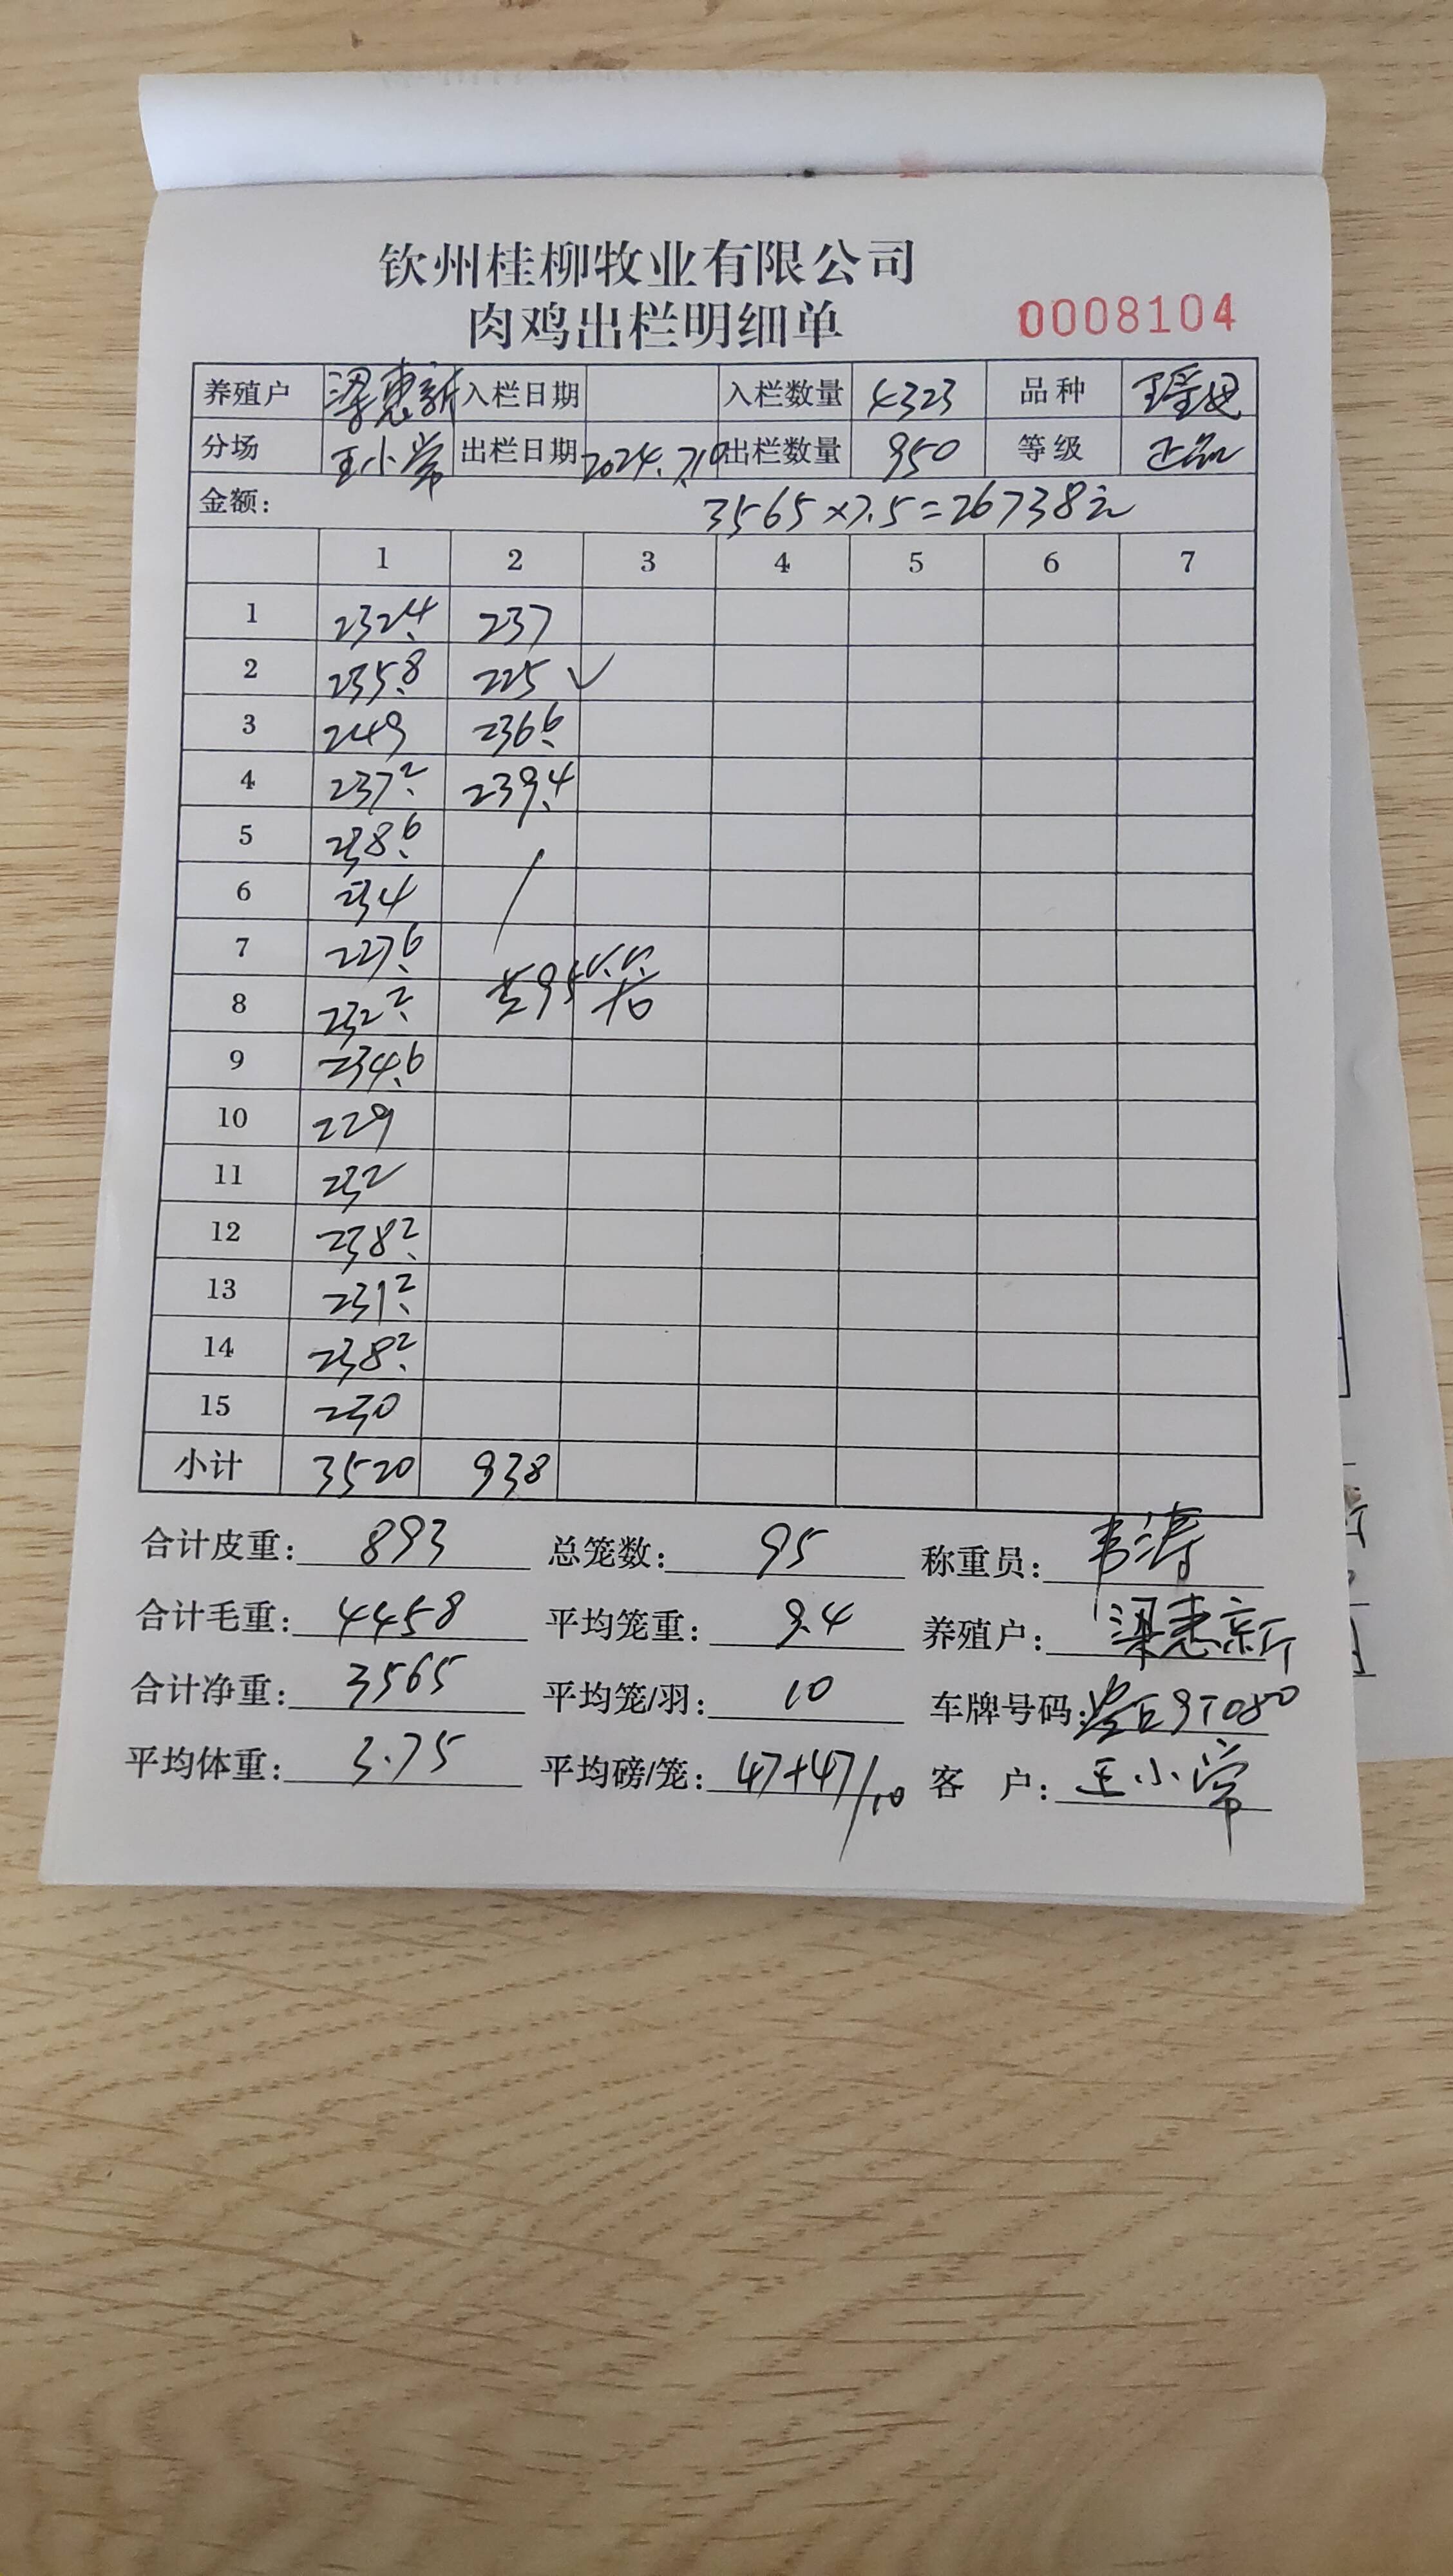 钦州桂柳牧业有限公司
肉鸡出栏明细单
0008104
养殖户 梁惠新 入栏日期 入栏数量 4323 品种
分场 王小常 出栏日期 2024.7.10 出栏数量 950 等级 正品
金额: 3565×7.5=26738元
1 2 3 4 5 6 7
1 232.4 237
2 235.8 225 ✓
3 249 236.6
4 237.2 239.4
5 238.6
6 234
7 227.6
8 232.2
9 234.6
10 229
11 232
12 238.2
13 231.2
14 238.2
15 230
小计 3520 938
合计皮重: 893 总笼数: 95 称重员: 韦涛
合计毛重: 4458 平均笼重: 9.4 养殖户: 梁惠新
合计净重: 3565 平均笼/羽: 10 车牌号码:
平均体重: 3.75 平均磅/笼: 47+47/10 客 户: 王小常